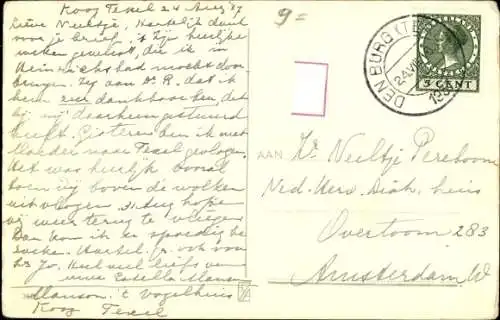 Koog Texel 24 Aug '37
Lieve Neeltje, Hartelijk dank
voor je brief. 't Zijn heerlijke
weken geweest, die ik in
Heinrichsbad mocht door-
brengen. Zeg aan Dr. R. dat ik
hem zeer dankbaar ben, dat
hij mij daarheen gestuurd
heeft. Gisteren ben ik met
Moeder naar Texel gevlogen.
Het was heerlijk vooral
toen wij boven de wolken
uit vlogen. 31 Aug hopen
wij weer terug te vliegen.
Dan kom ik je spoedig be-
zoeken. Hartel. gr. ook voor
Zr Jo. Heel veel liefs van
Manson 't Vogelhuis
Koog Texel
9=
DEN BURG (TEXEL)
5 CENT
AAN Zr Neeltje Pereboom
Ned. Herv. Diak. huis
Overtoom 283
Amsterdam W.